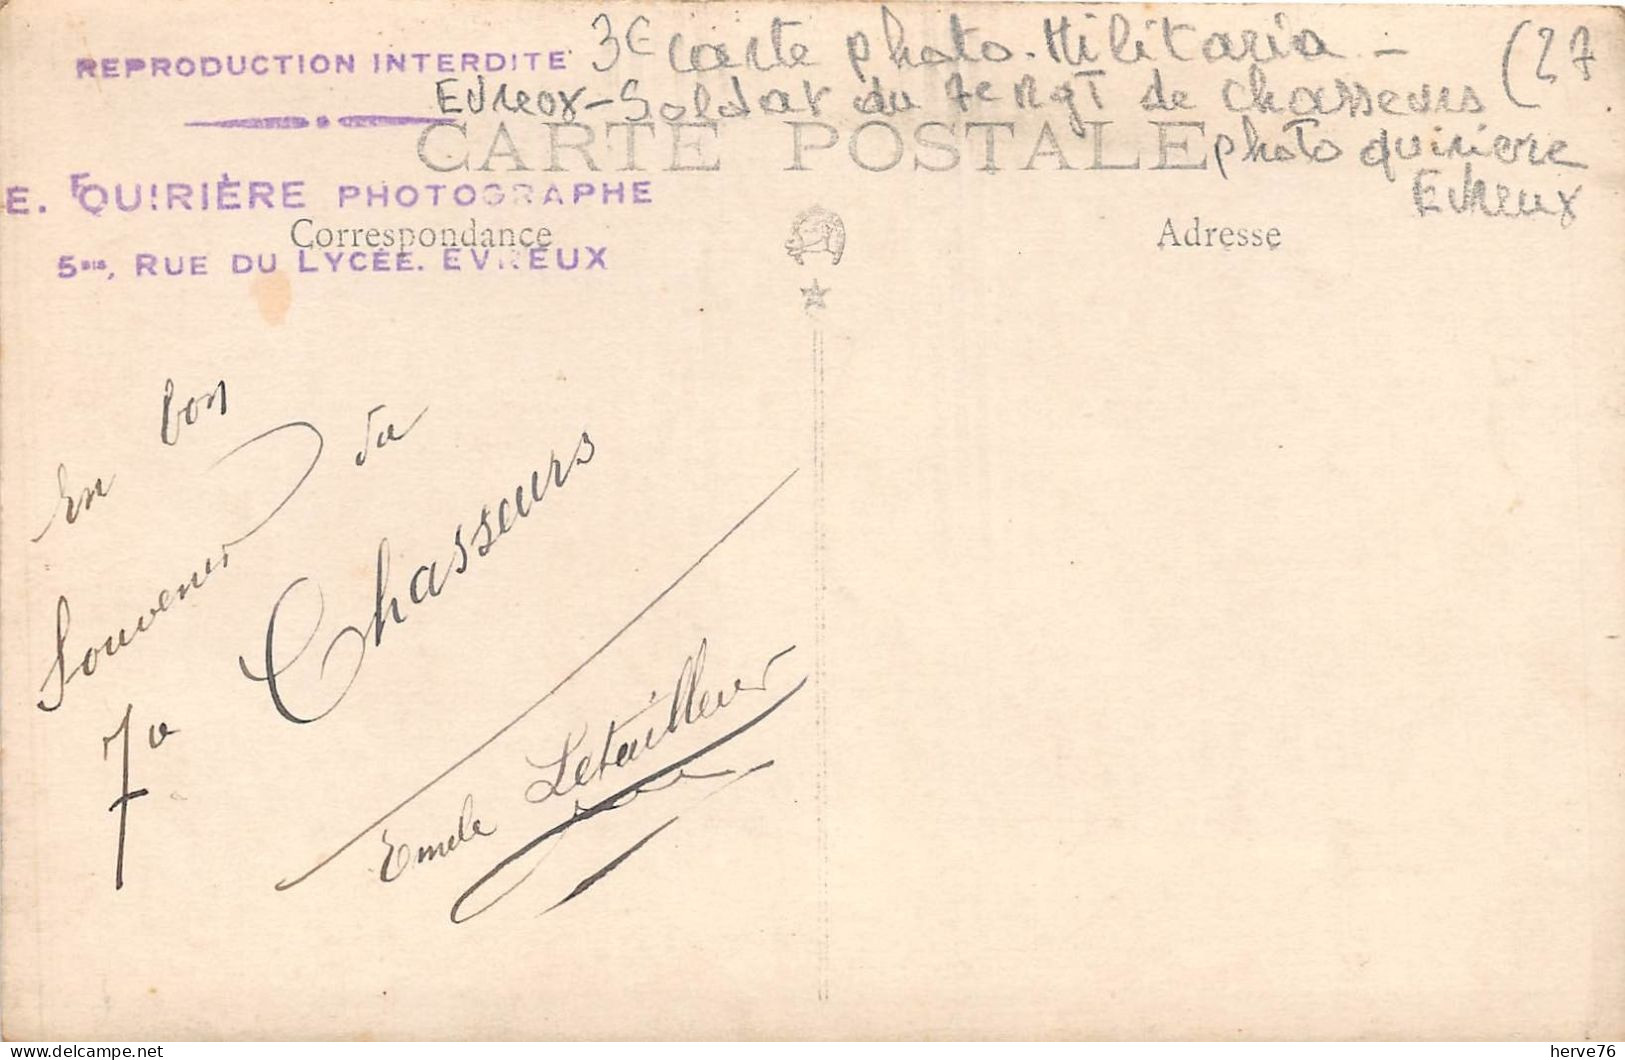 REPRODUCTION INTERDITE
3€ carte photo - Militaria -
Evreux - Soldat du 7e Rgt de Chasseurs (27
photo quiriere
Evreux
CARTE POSTALE
E. QUIRIÈRE PHOTOGRAPHE
5BIS, RUE DU LYCÉE. EVREUX
Correspondance
Adresse
En bon
Souvenir du
7e Chasseurs
Emile Letailleur
herve76